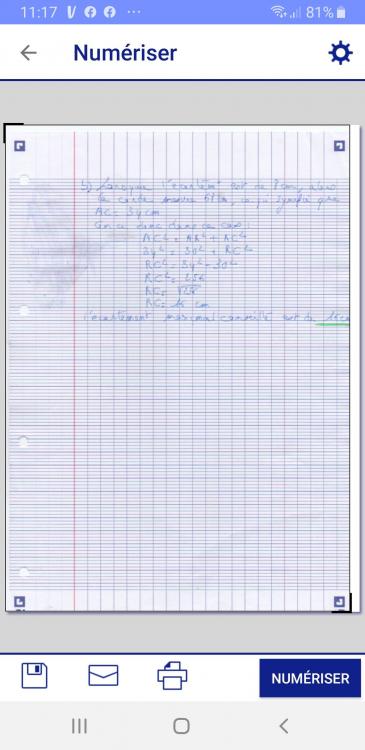 11:17
81%
Numériser
5) Lorsque l'écartement est de 8 cm, alors
la corde mesure 68 cm, ce qui signifie que
AC = 34 cm
On a donc dans ce cas :
AC² = AR² + RC²
34² = 30² + RC²
RC² = 34² - 30²
RC² = 256
RC = √256
RC = 16 cm
l'écartement maximal conseillé est de 16 cm
NUMÉRISER